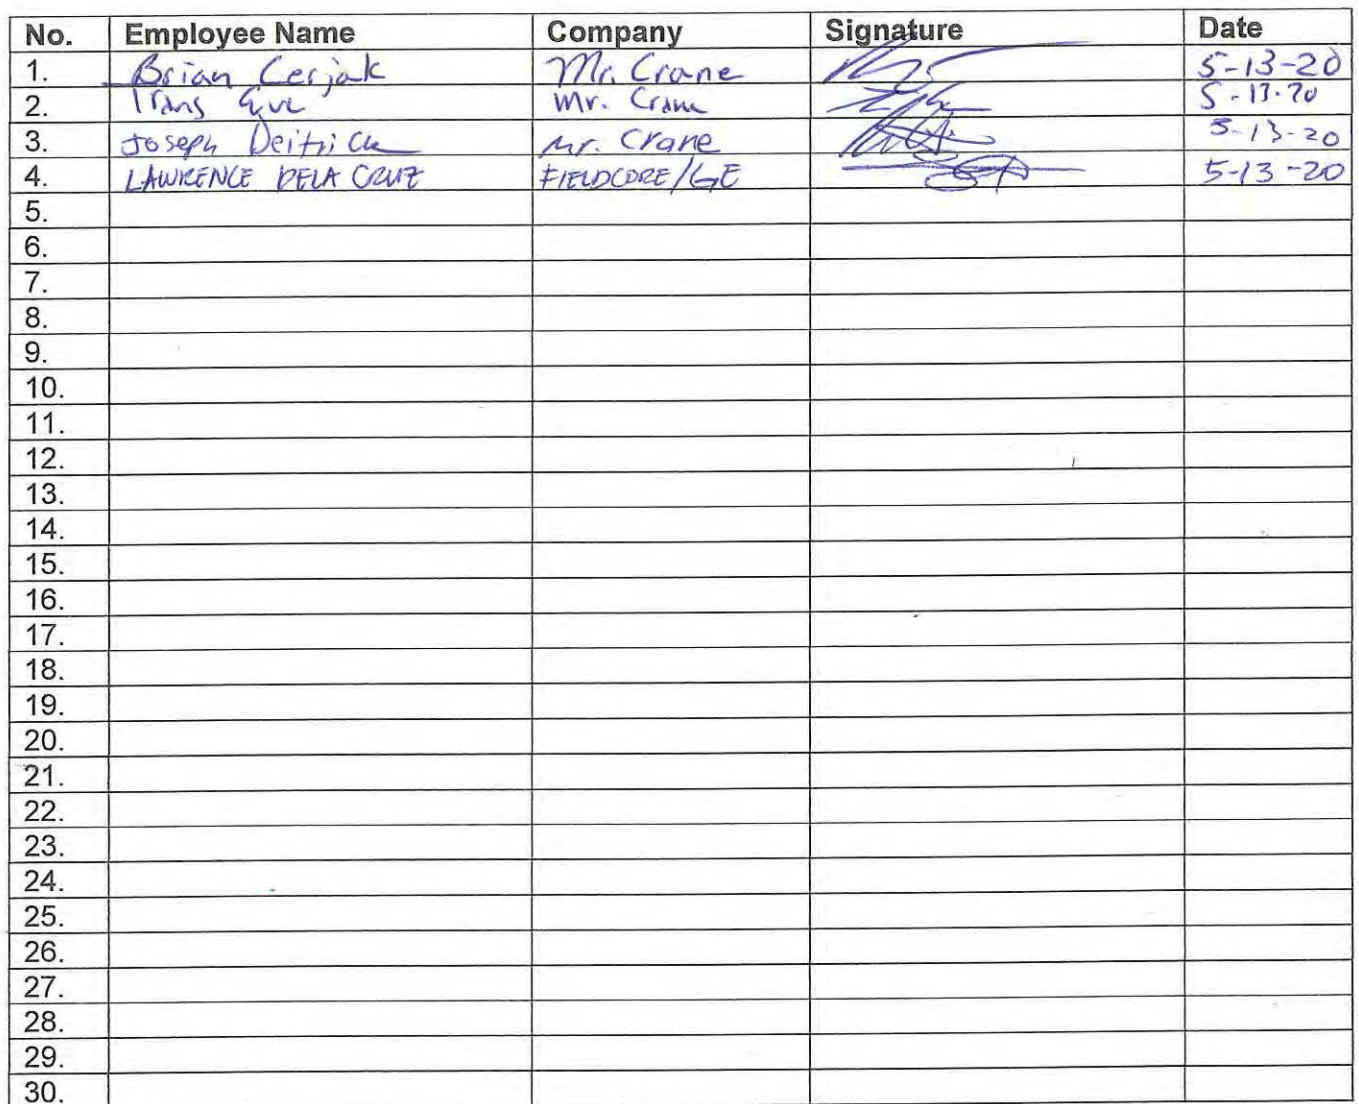 No. Employee Name Company Signature Date
1. Brian Cerjak Mr. Crane 5-13-20
2. Mr. Crane 5-13-20
3. Joseph Deitrick Mr. Crane 5-13-20
4. LAWRENCE DELA CRUZ FIELDCORE/GE 5-13-20
5.
6.
7.
8.
9.
10.
11.
12.
13.
14.
15.
16.
17.
18.
19.
20.
21.
22.
23.
24.
25.
26.
27.
28.
29.
30.